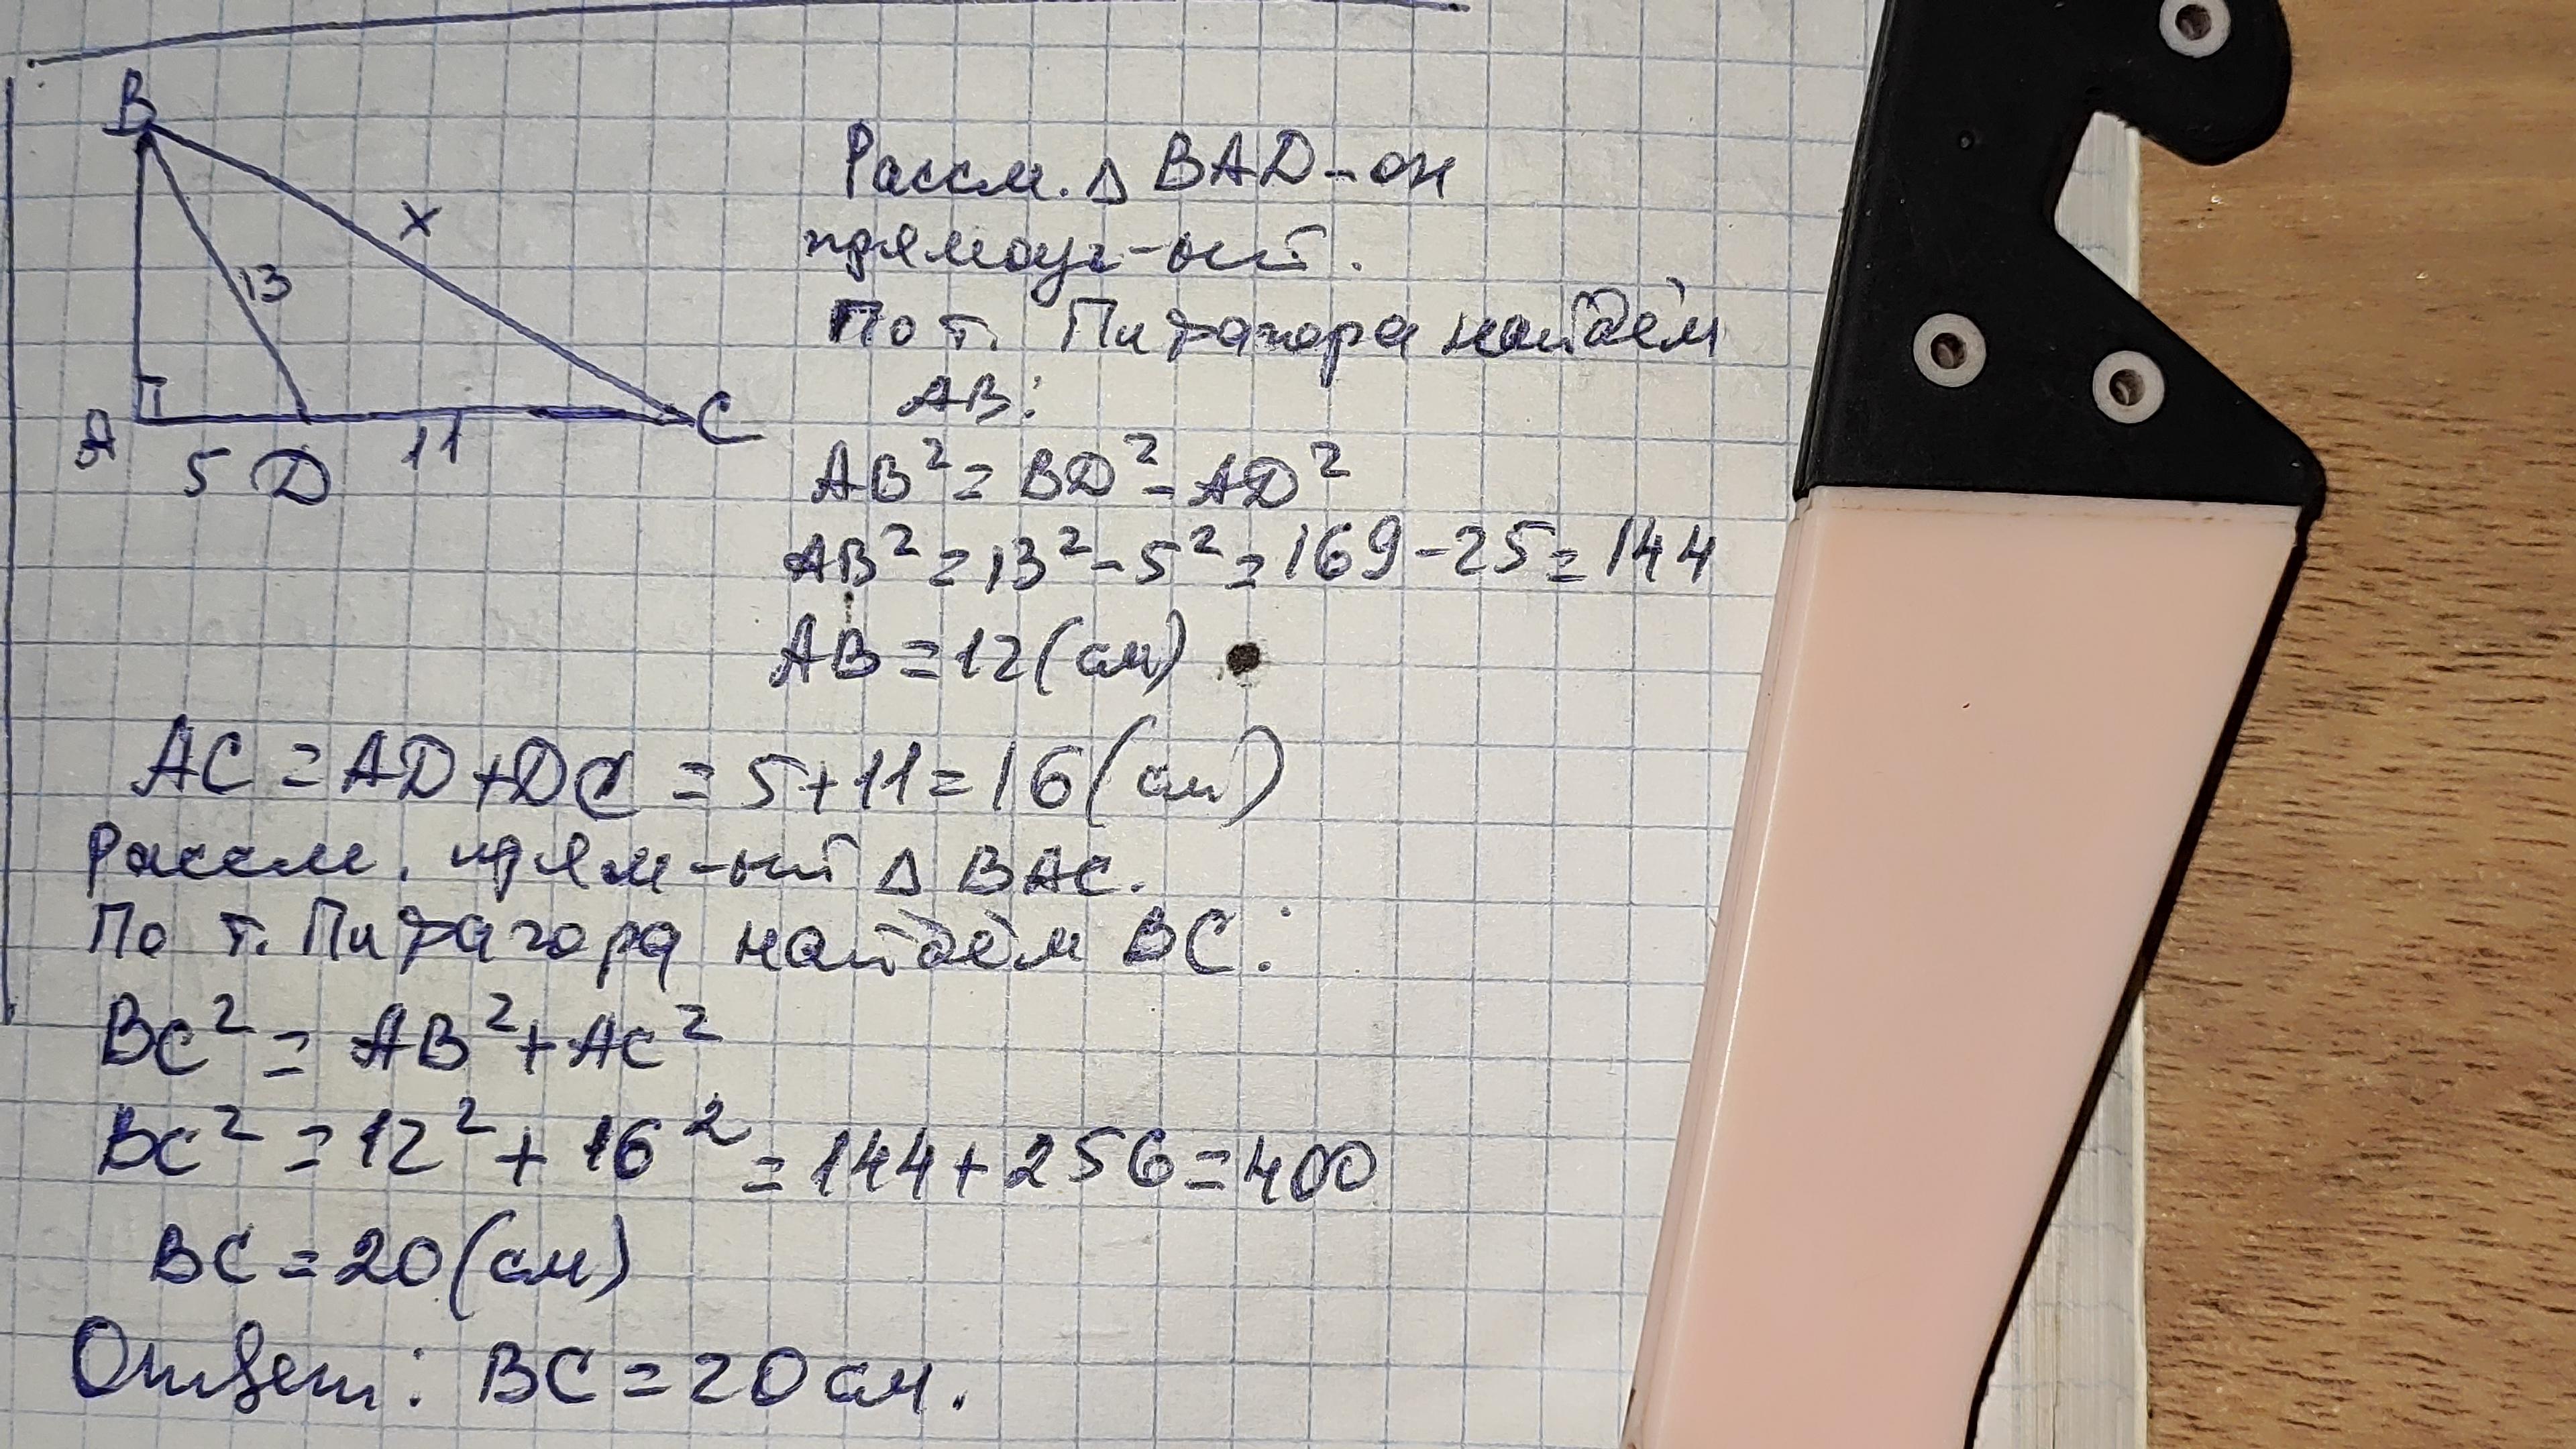 B
x
13
A
5 D
11
C
Рассм. Δ BAD - он
прямоуг-ый.
По т. Пифагора найдём
AB:
AB² = BD² - AD²
AB² = 13² - 5² = 169 - 25 = 144
AB = 12 (см)
AC = AD + DC = 5 + 11 = 16 (см)
Рассм. прям-ый Δ BAC.
По т. Пифагора найдём BC:
BC² = AB² + AC²
BC² = 12² + 16² = 144 + 256 = 400
BC = 20 (см)
Ответ: BC = 20 см.